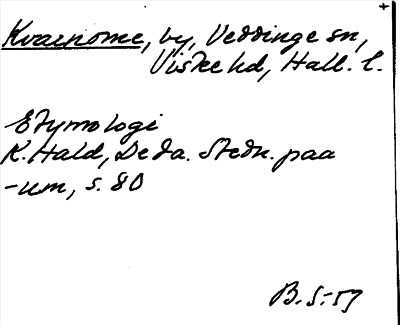 Kvarnome, by, Veddinge sn,
Viske hd, Hall. l.
Etymologi
K. Hald, De da. Stedn. paa
-um, s. 80
B. S-59